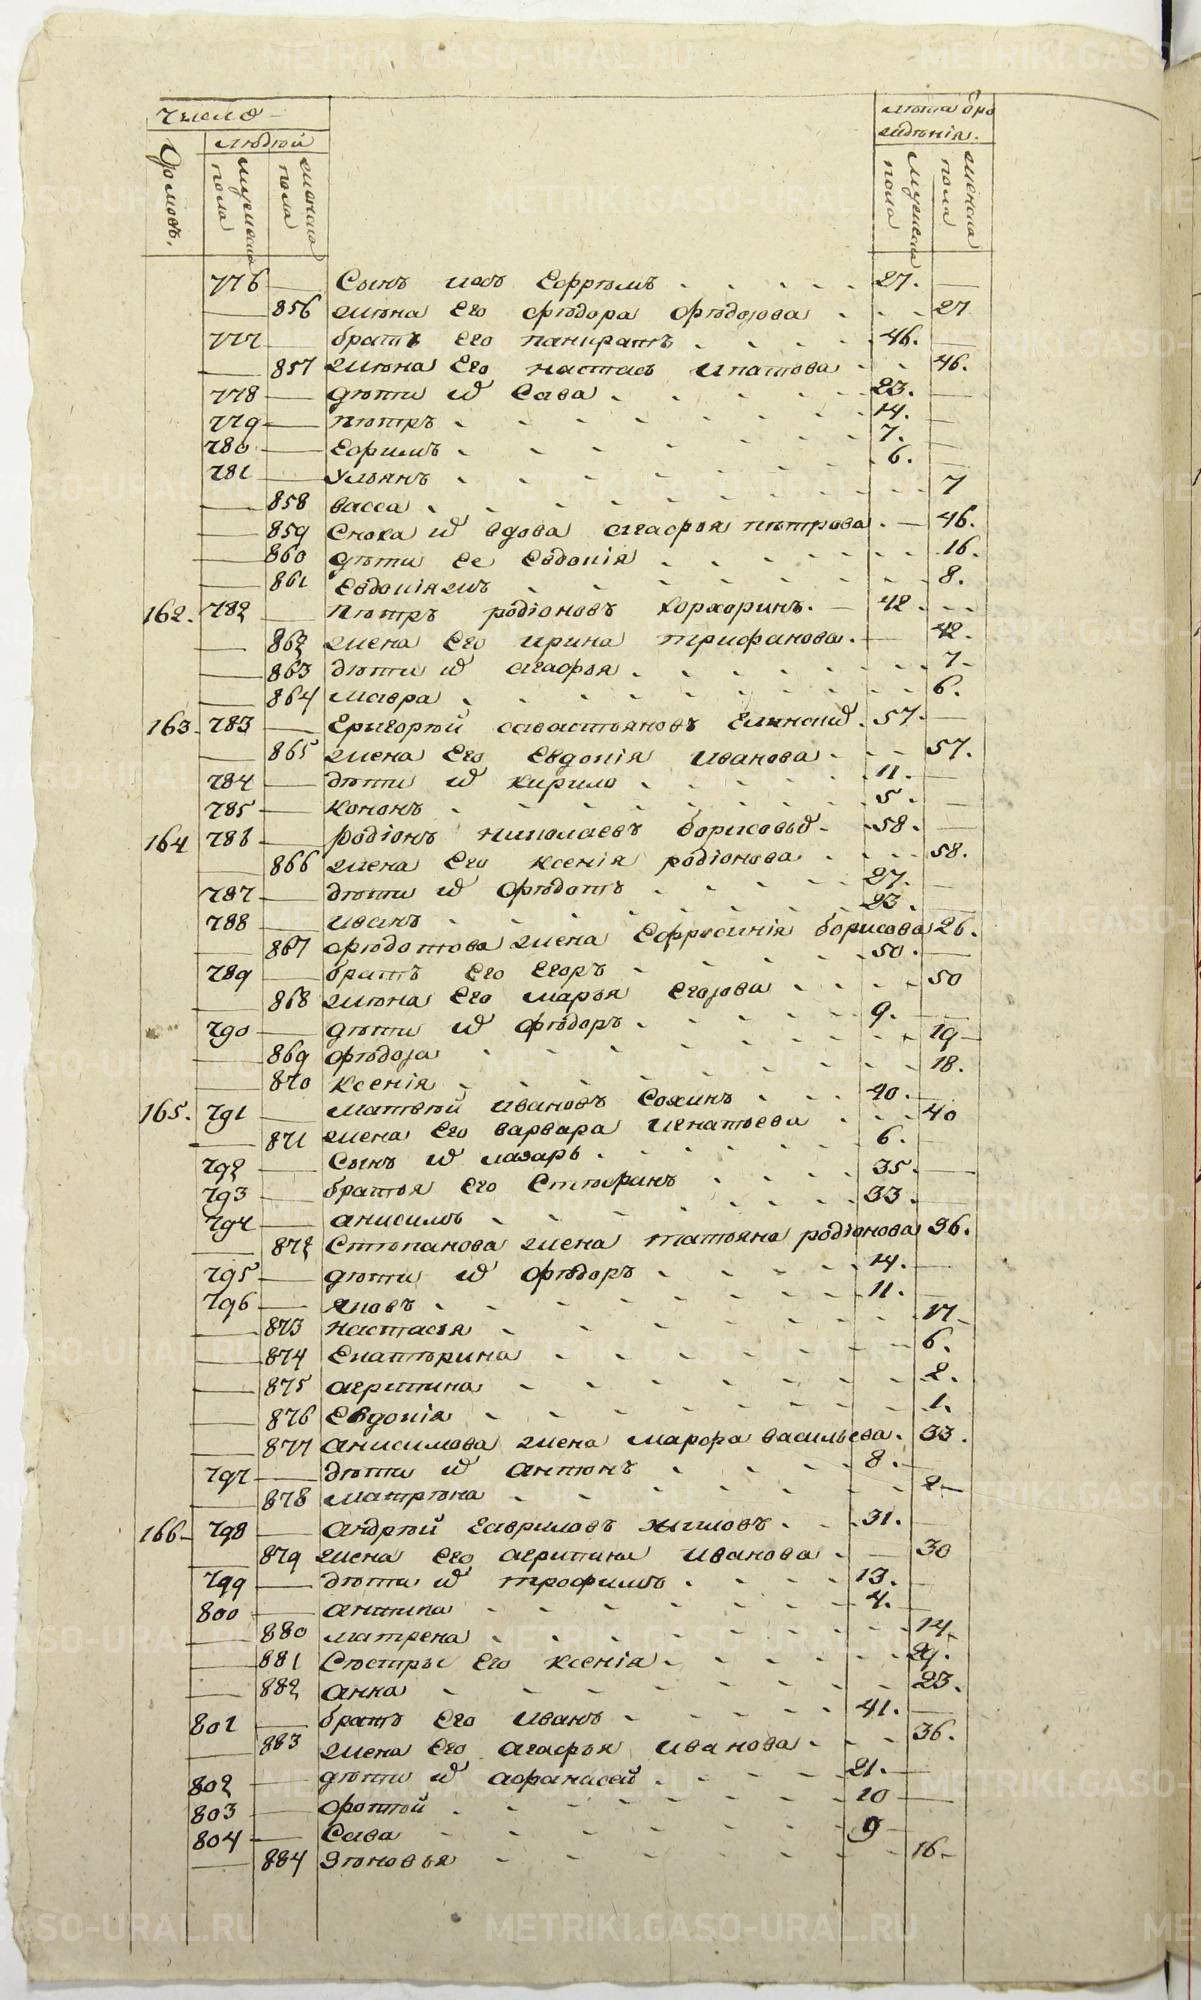 METRIKI.GASO-URAL.RU
число
людей
домовъ,
мужеска пола
женска пола
лѣта от ро
жденія.
мужеска пола
женска пола
776 — Сынъ ихъ Ефремъ 27. —
— 856 жена его Федора Федорова 27
777 — братъ его панкратъ 46. —
— 857 жена его настасья Ипатова 46.
778 — дѣти их Сава 23. —
779 — петръ 14. —
780 — Ефимъ 7. —
781 — Ульянъ 6. —
— 858 васса 7
— 859 Сноха их вдова агафья петрова 46.
— 860 дѣти ее Евдокія 16.
— 861 Евдокія жъ 8.
162. 782 — петръ родіоновъ 42
— 862 жена его ирина трифанова 42.
— 863 дѣти их агафья 7
— 864 мавра 6.
163. 783 — Григорей савастьяновъ 57. —
— 865 жена его Евдокія Иванова 57.
784 — дѣти их кирило 11. —
785 — кононъ 5. —
164 786 — родіонъ николаевъ 58. —
— 866 жена его ксенія родіонова 58.
787 — дѣти их Федотъ 27. —
788 — иванъ 23. —
— 867 федотова жена Ефросинія борисова 26.
789 — братъ его Егоръ 50. —
— 868 жена его марья Егорова 50
790 — дѣти их федоръ 9. —
— 869 федора 19
— 870 ксенія 18.
165. 791 — матвей ивановъ 40. —
— 871 жена его варвара игнатьева 40
792 — Сынъ их лазарь 6. —
793 — братья его Степанъ 35. —
794 — анисимъ 33. —
— 872 Степанова жена татьяна родіонова 36.
795 — дѣти их федоръ 14. —
796 — яковъ 11. —
— 873 настасья 17
— 874 Екатерина 6.
— 875 агрипина 2.
— 876 Евдокія 1.
— 877 анисимова жена марфа васильева 33.
797 — дѣти их антонъ 8. —
— 878 матрена 2
166 798 — андрей гавриловъ 31. —
— 879 жена его агрипина иванова 30
799 — дѣти их трофимъ 13. —
800 — антипа 4. —
— 880 матрена 14
— 881 Сестры его ксенія 29.
— 882 анна 23.
801 — братъ его иванъ 41. —
— 883 жена его агафья иванова 36.
802 — дѣти их афанасей 21. —
803 — фотей 10 —
804 — Сава 9 —
— 884 Зеновья 16
METRIKI.GASO-URAL.RU